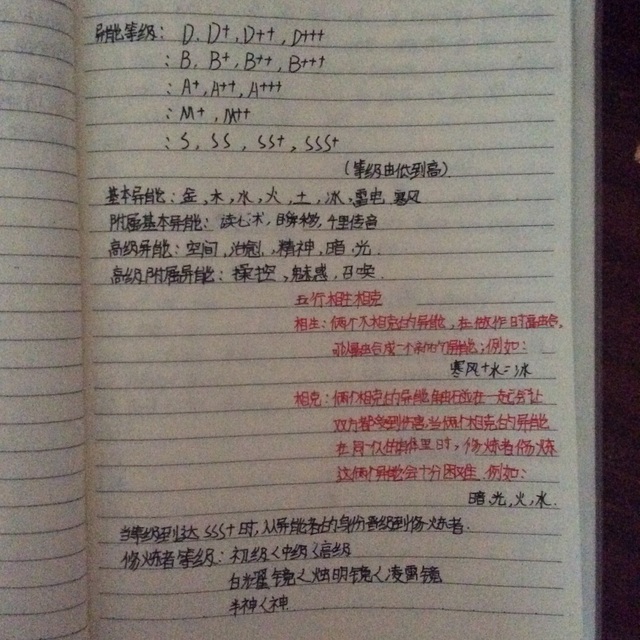 异能等级： D, D+, D++, D+++
： B, B+, B++, B+++
： A+, A++, A+++
： M+, M++
： S, SS, SS+, SSS+
（等级由低到高）
基本异能：金，木，水，火，土，冰，雷电，寒风
附属基本异能：读心术，千里传音
高级异能：空间，治愈，精神，暗，光
高级附属异能：操控，魅惑，召唤
五行相生相克
相生：俩个不相克的异能，在放作时
异能；例如：
寒风+水=冰
相克：俩个相克的异能碰在一起会让
双方都受到伤害，当俩个相克的异能
在同一个里时，修炼者修炼
这俩个异能会十分困难，例如：
暗，光，火，水.
当等级到达SSS+时，从异能者的身份晋级到修炼者.
修炼者等级：初级<中级<高级
白耀镜<烛明镜<凌雷镜
半神<神